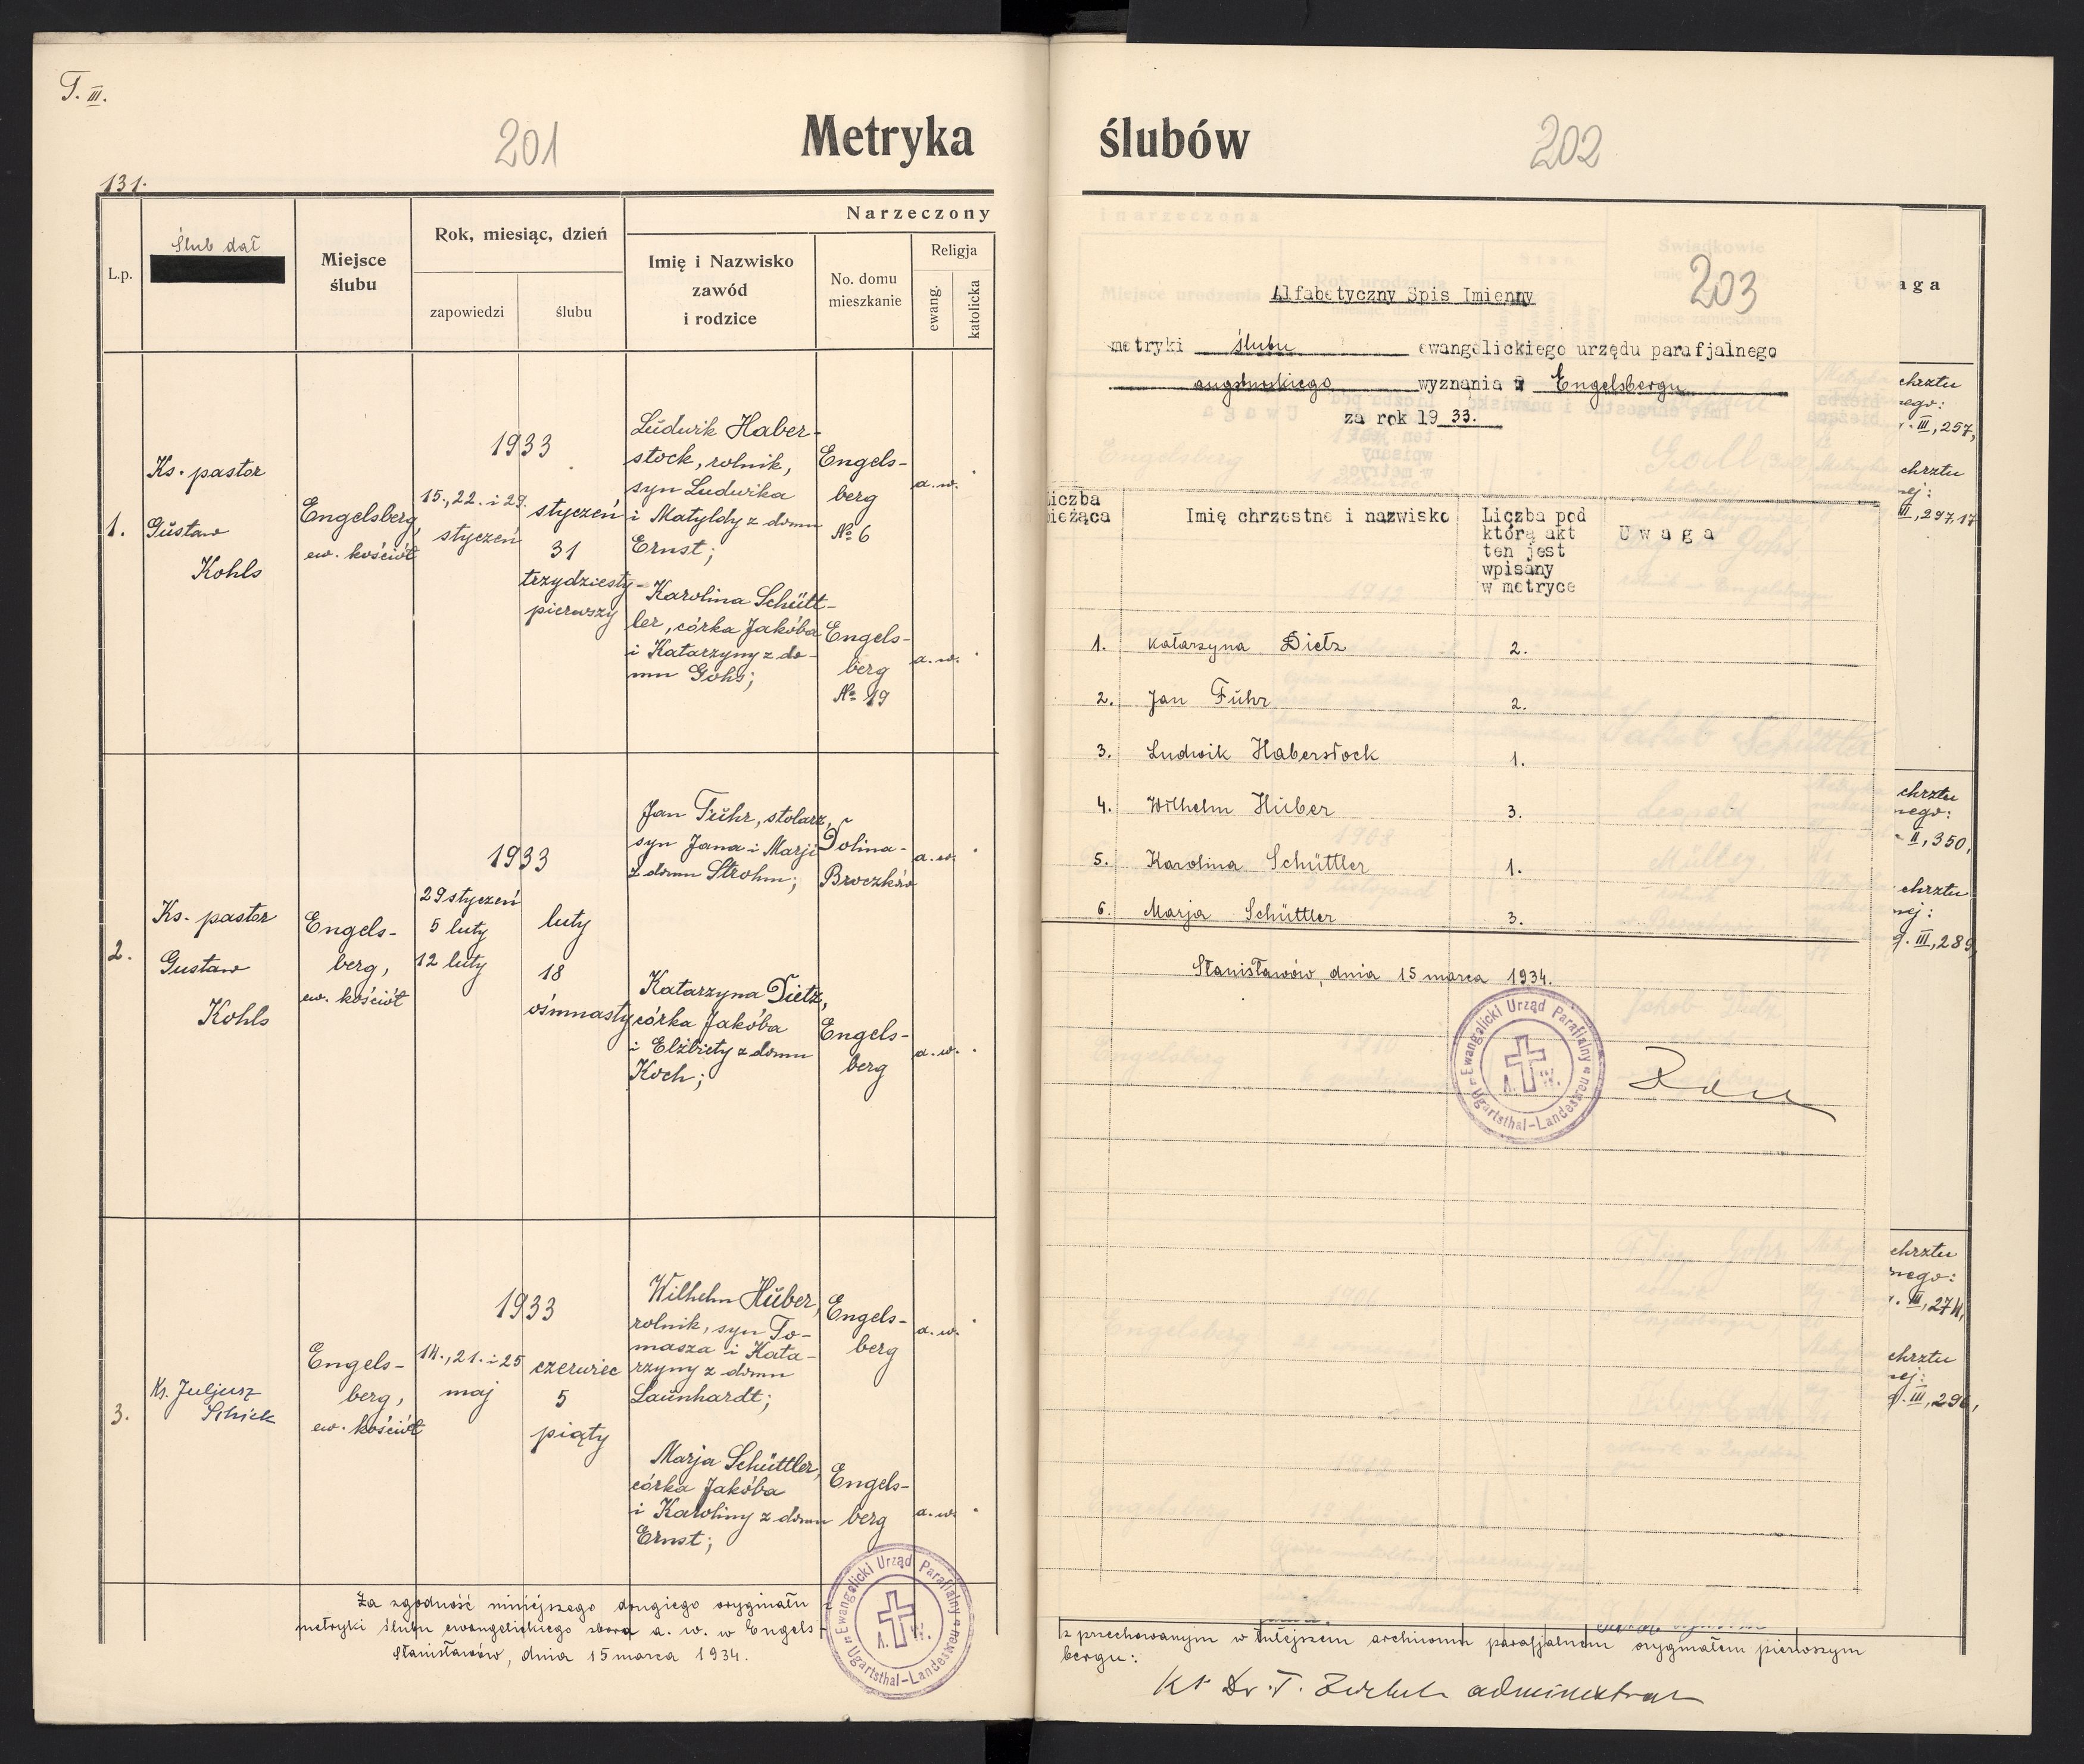 T. III.
201
Metryka
131.
L.p.
Ślub dał
Miejsce
ślubu
Rok, miesiąc, dzień
zapowiedzi
ślubu
Narzeczony
Imię i Nazwisko
zawód
i rodzice
No. domu
mieszkanie
Religja
ewang.
katolicka
1.
Ks. pastor
Gustaw
Kohls
Engelsberg,
ew. kościół
1933
15., 22. i 29.
styczeń
styczeń
31
trzydziesty-
pierwszy
Ludwik Haber-
stock, rolnik,
syn Ludwika
i Matyldy z domu
Ernst;
Engels-
berg
№ 6
a. w.
Karolina Schütt-
ler, córka Jakóba
i Katarzyny z do-
mu Gohs;
Engels-
berg
№ 19
a. w.
2.
Ks. pastor
Gustaw
Kohls
Engels-
berg,
ew. kościół
1933
29 styczeń
5 luty
12 luty
luty
18
ośmnasty
Jan Führ, stolarz,
syn Jana i Marji
z domu Strohm;
Dolina-
Broczków
a. w.
Katarzyna Dietz,
córka Jakóba
i Elżbiety z domu
Koch;
Engels-
berg
a. w.
3.
Ks. Juljusz
Schick
Engels-
berg,
ew. kościół
1933
14., 21. i 25
maj
czerwiec
5
piąty
Wilhelm Huber,
rolnik, syn To-
masza i Kata-
rzyny z domu
Launhardt;
Engels-
berg
a. w.
Marja Schüttler,
córka Jakóba
i Karoliny z domu
Ernst;
Engels-
berg
a. w.
Za zgodność niniejszego drugiego oryginału
metryki ślubu ewangelickiego zboru a. w. w Engels-
Stanisławów, dnia 15 marca 1934.
Ewangelicki Urząd Parafialny w Ugartsthal-Landestreu
A. W.
ślubów
202
203
Alfabetyczny Spis Imienny
metryki ślubu ewangelickiego urzędu parafjalnego
augsburskiego wyznania w Engelsbergu
za rok 1933.
Liczba
bieżąca
Imię chrzestne i nazwisko
Liczba pod
którą akt
ten jest
wpisany
w metryce
Uwaga
1. Katarzyna Dietz 2.
2. Jan Führ 2.
3. Ludwik Haberstock 1.
4. Wilhelm Huber 3.
5. Karolina Schüttler 1.
6. Marja Schüttler 3.
Stanisławów, dnia 15 marca 1934.
Ewangelicki Urząd Parafialny w Ugartsthal-Landestreu
A. W.
aga
chrztu
nego:
III, 257,
chrztu
nej:
III, 297, 17
chrztu
nego:
II, 350,
chrztu
nej:
III, 289,
chrztu
nego:
III, 274,
chrztu
nej:
III, 296,
z przechowanym w tutejszem archiwum parafjalnem oryginałem pierwszym
bergu:
Ks Dr. T. Zöckler administrator